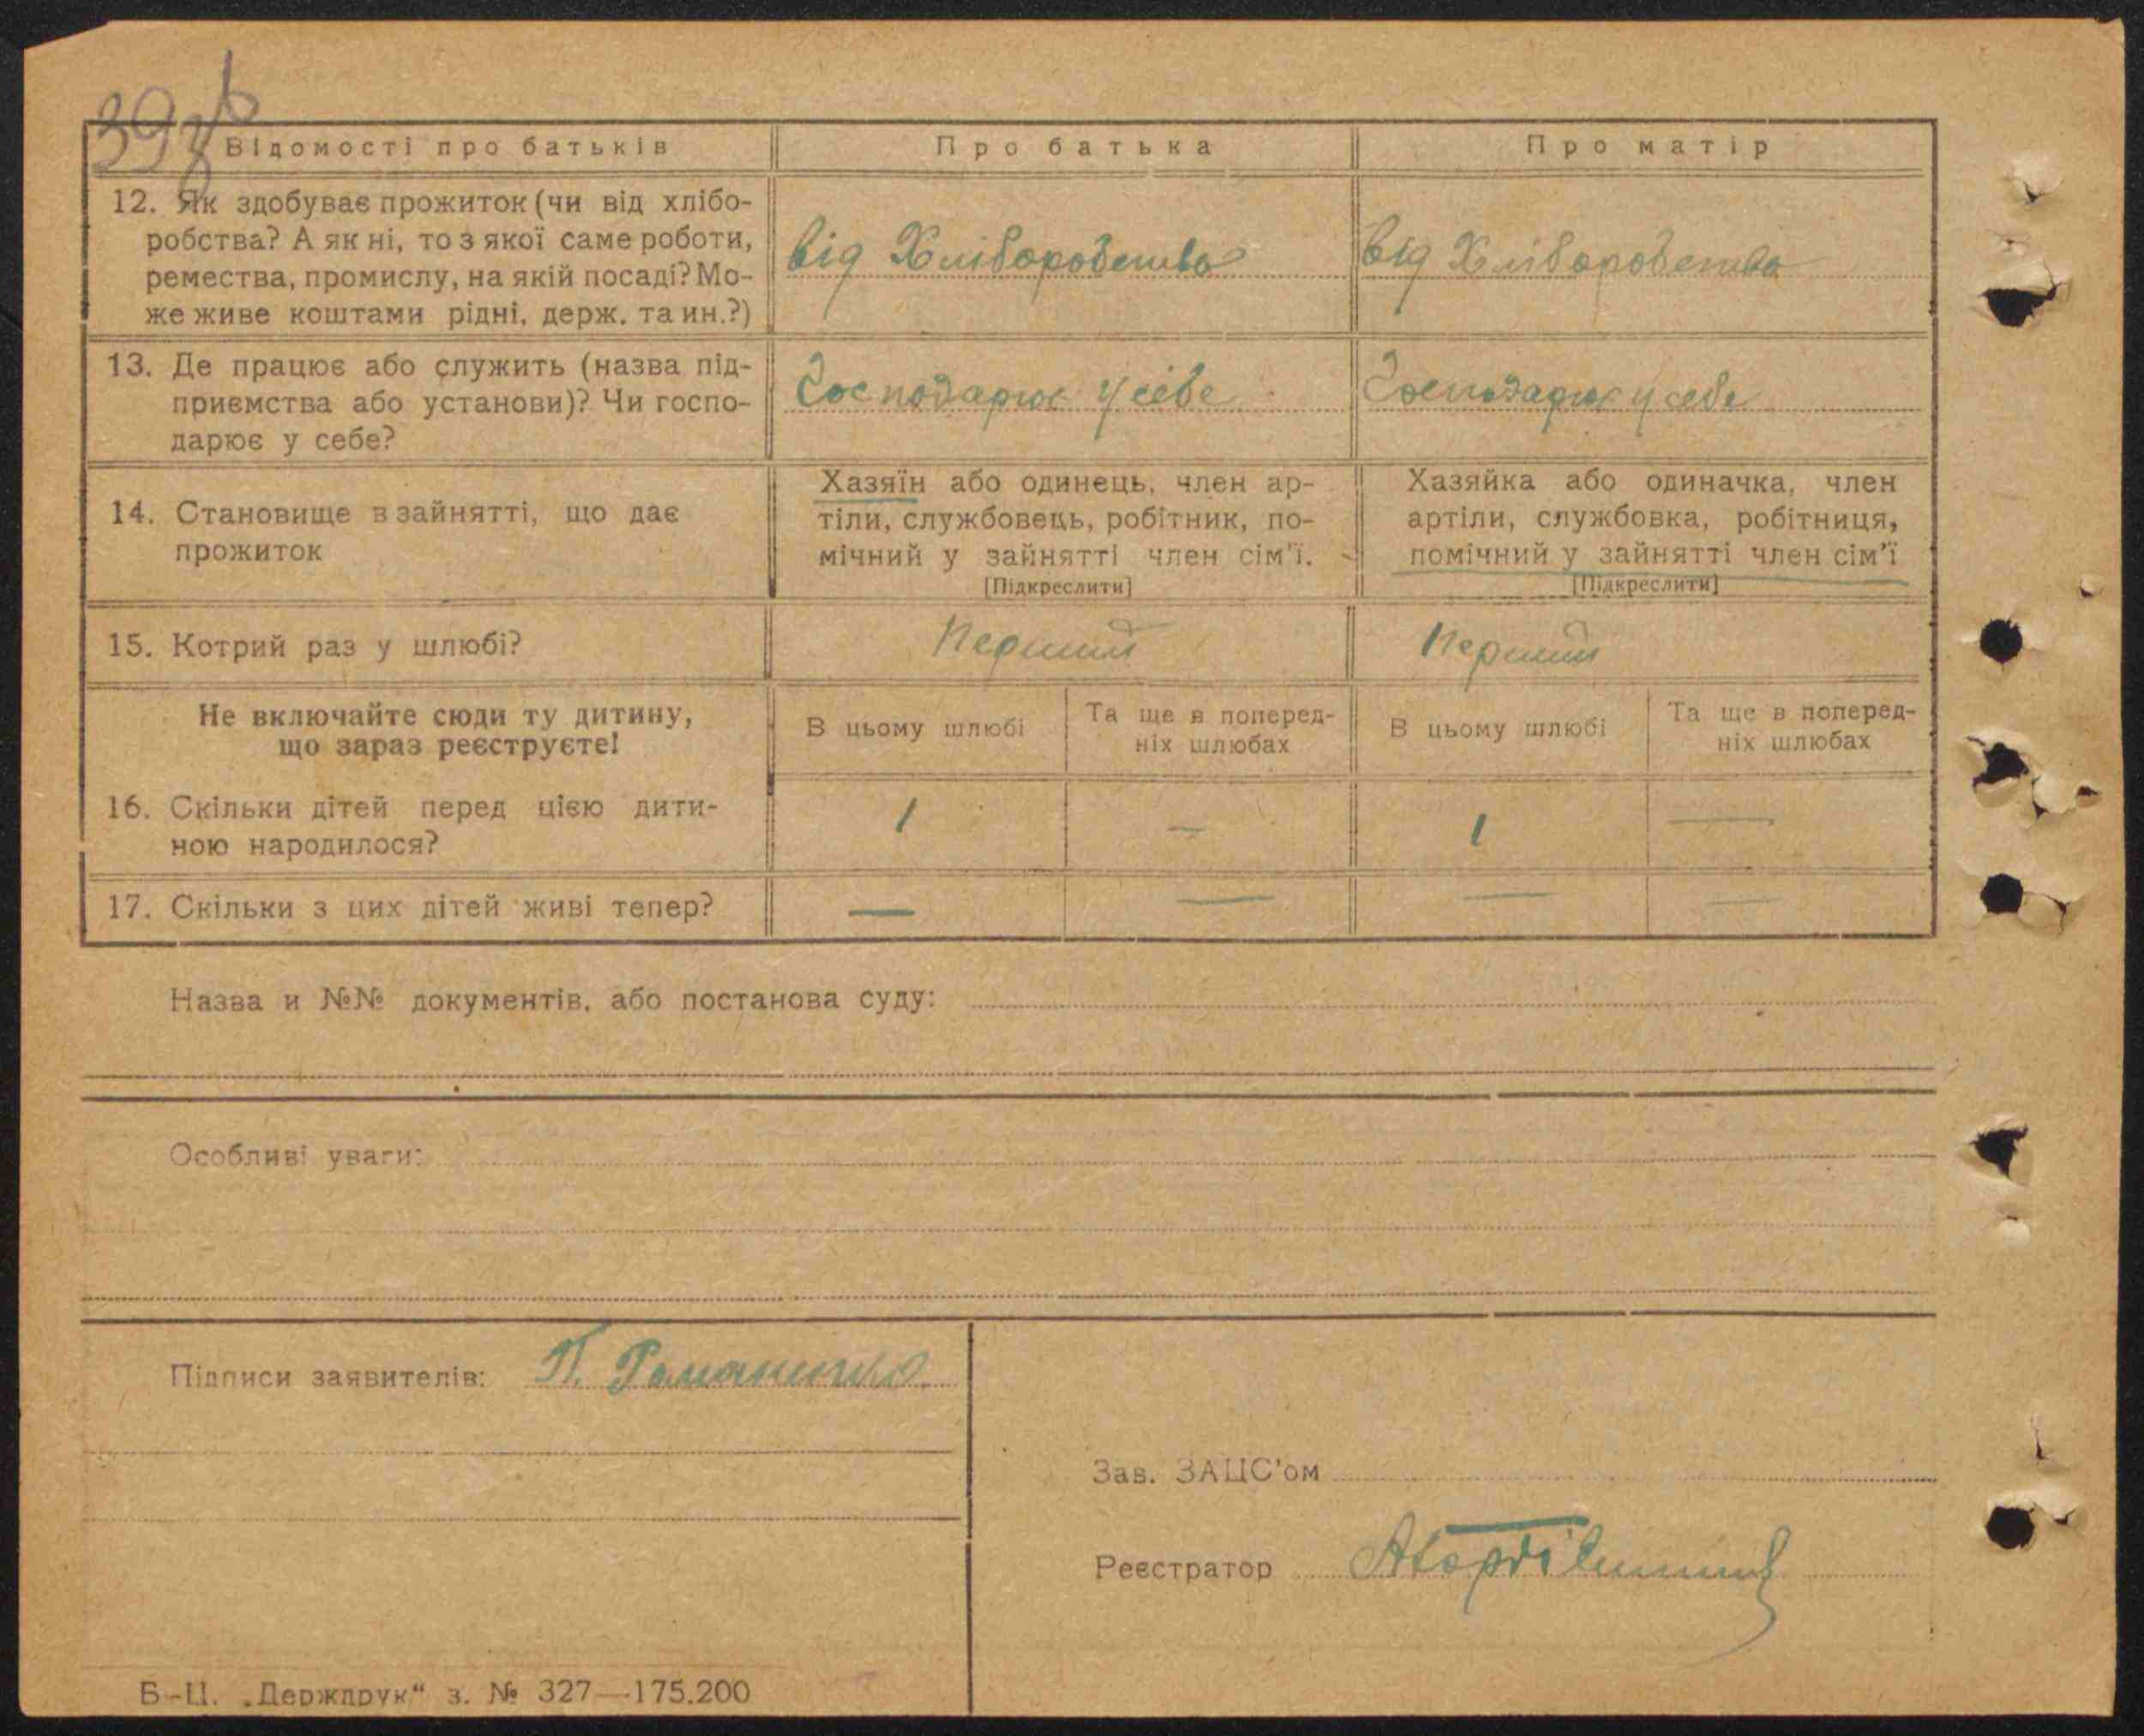 39зв
Відомості про батьків
Про батька
Про матір
12. Як здобуває прожиток (чи від хлібо-
робства? А як ні, то з якої саме роботи,
ремества, промислу, на якій посаді? Мо-
же живе коштами рідні, держ. та ин.?)
від Хліборобства
від Хліборобства
13. Де працює або служить (назва під-
приємства або установи)? Чи госпо-
дарює у себе?
Господарює у себе
Господарює у себе
14. Становище в зайнятті, що дає
прожиток
Хазяїн або одинець, член ар-
тіли, службовець, робітник, по-
мічний у зайнятті член сім'ї.
[Підкреслити]
Хазяйка або одиначка, член
артіли, службовка, робітниця,
помічний у зайнятті член сім'ї
[Підкреслити]
15. Котрий раз у шлюбі?
Перший
Перший
Не включайте сюди ту дитину,
що зараз реєструєте!
В цьому шлюбі
Та ще в поперед-
ніх шлюбах
В цьому шлюбі
Та ще в поперед-
ніх шлюбах
16. Скільки дітей перед цією дити-
ною народилося?
1
—
1
—
17. Скільки з цих дітей живі тепер?
—
—
—
—
Назва и №№ документів, або постанова суду:
Особливі уваги:
Підписи заявителів: П. Романенко
Зав. ЗАЦС'ом
Реєстратор
Б-Ц. „Держдрук“ з. № 327—175.200